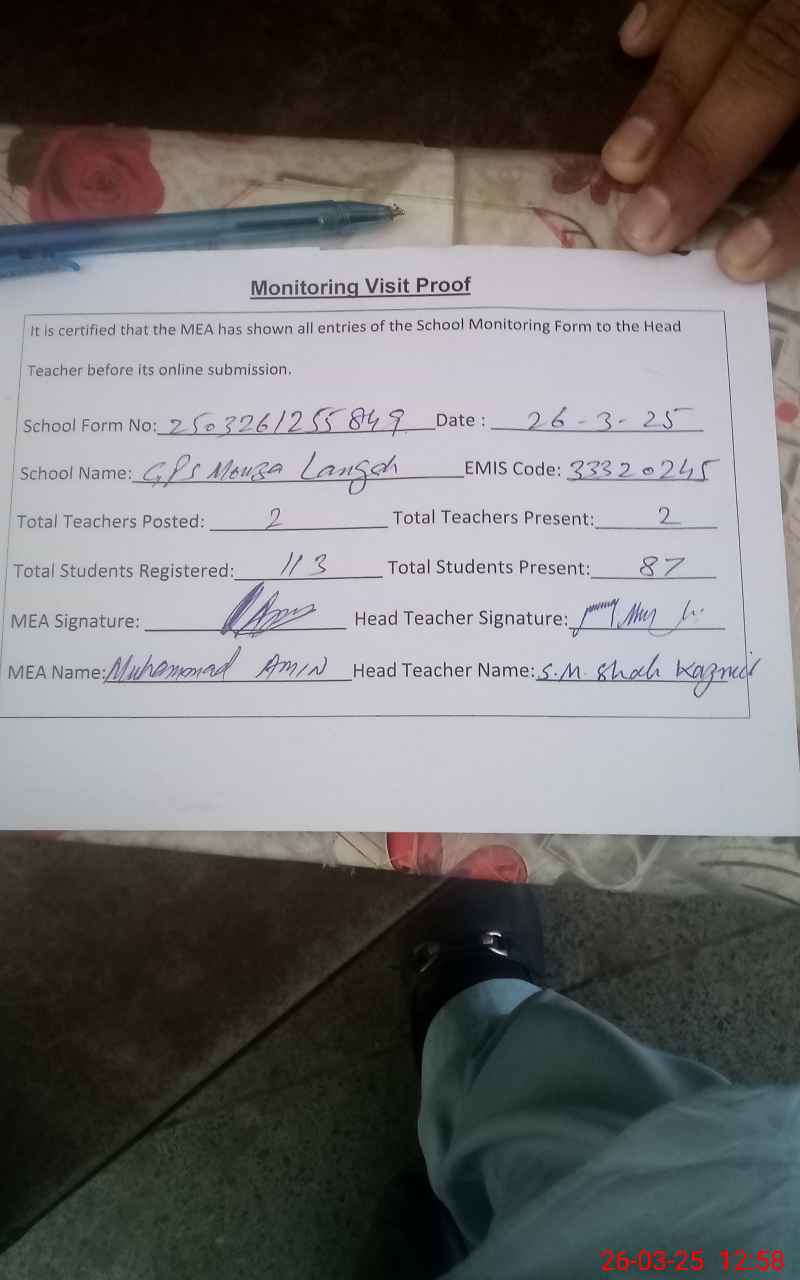 Monitoring Visit Proof
It is certified that the MEA has shown all entries of the School Monitoring Form to the Head
Teacher before its online submission.
School Form No: 2503261255849 Date : 26-3-25
School Name: GPS Mouza Langah EMIS Code: 33320245
Total Teachers Posted: 2 Total Teachers Present: 2
Total Students Registered: 113 Total Students Present: 87
MEA Signature: Head Teacher Signature:
MEA Name: Muhammad AMIN Head Teacher Name: S.M. Shah Kazmi
26-03-25 12:58